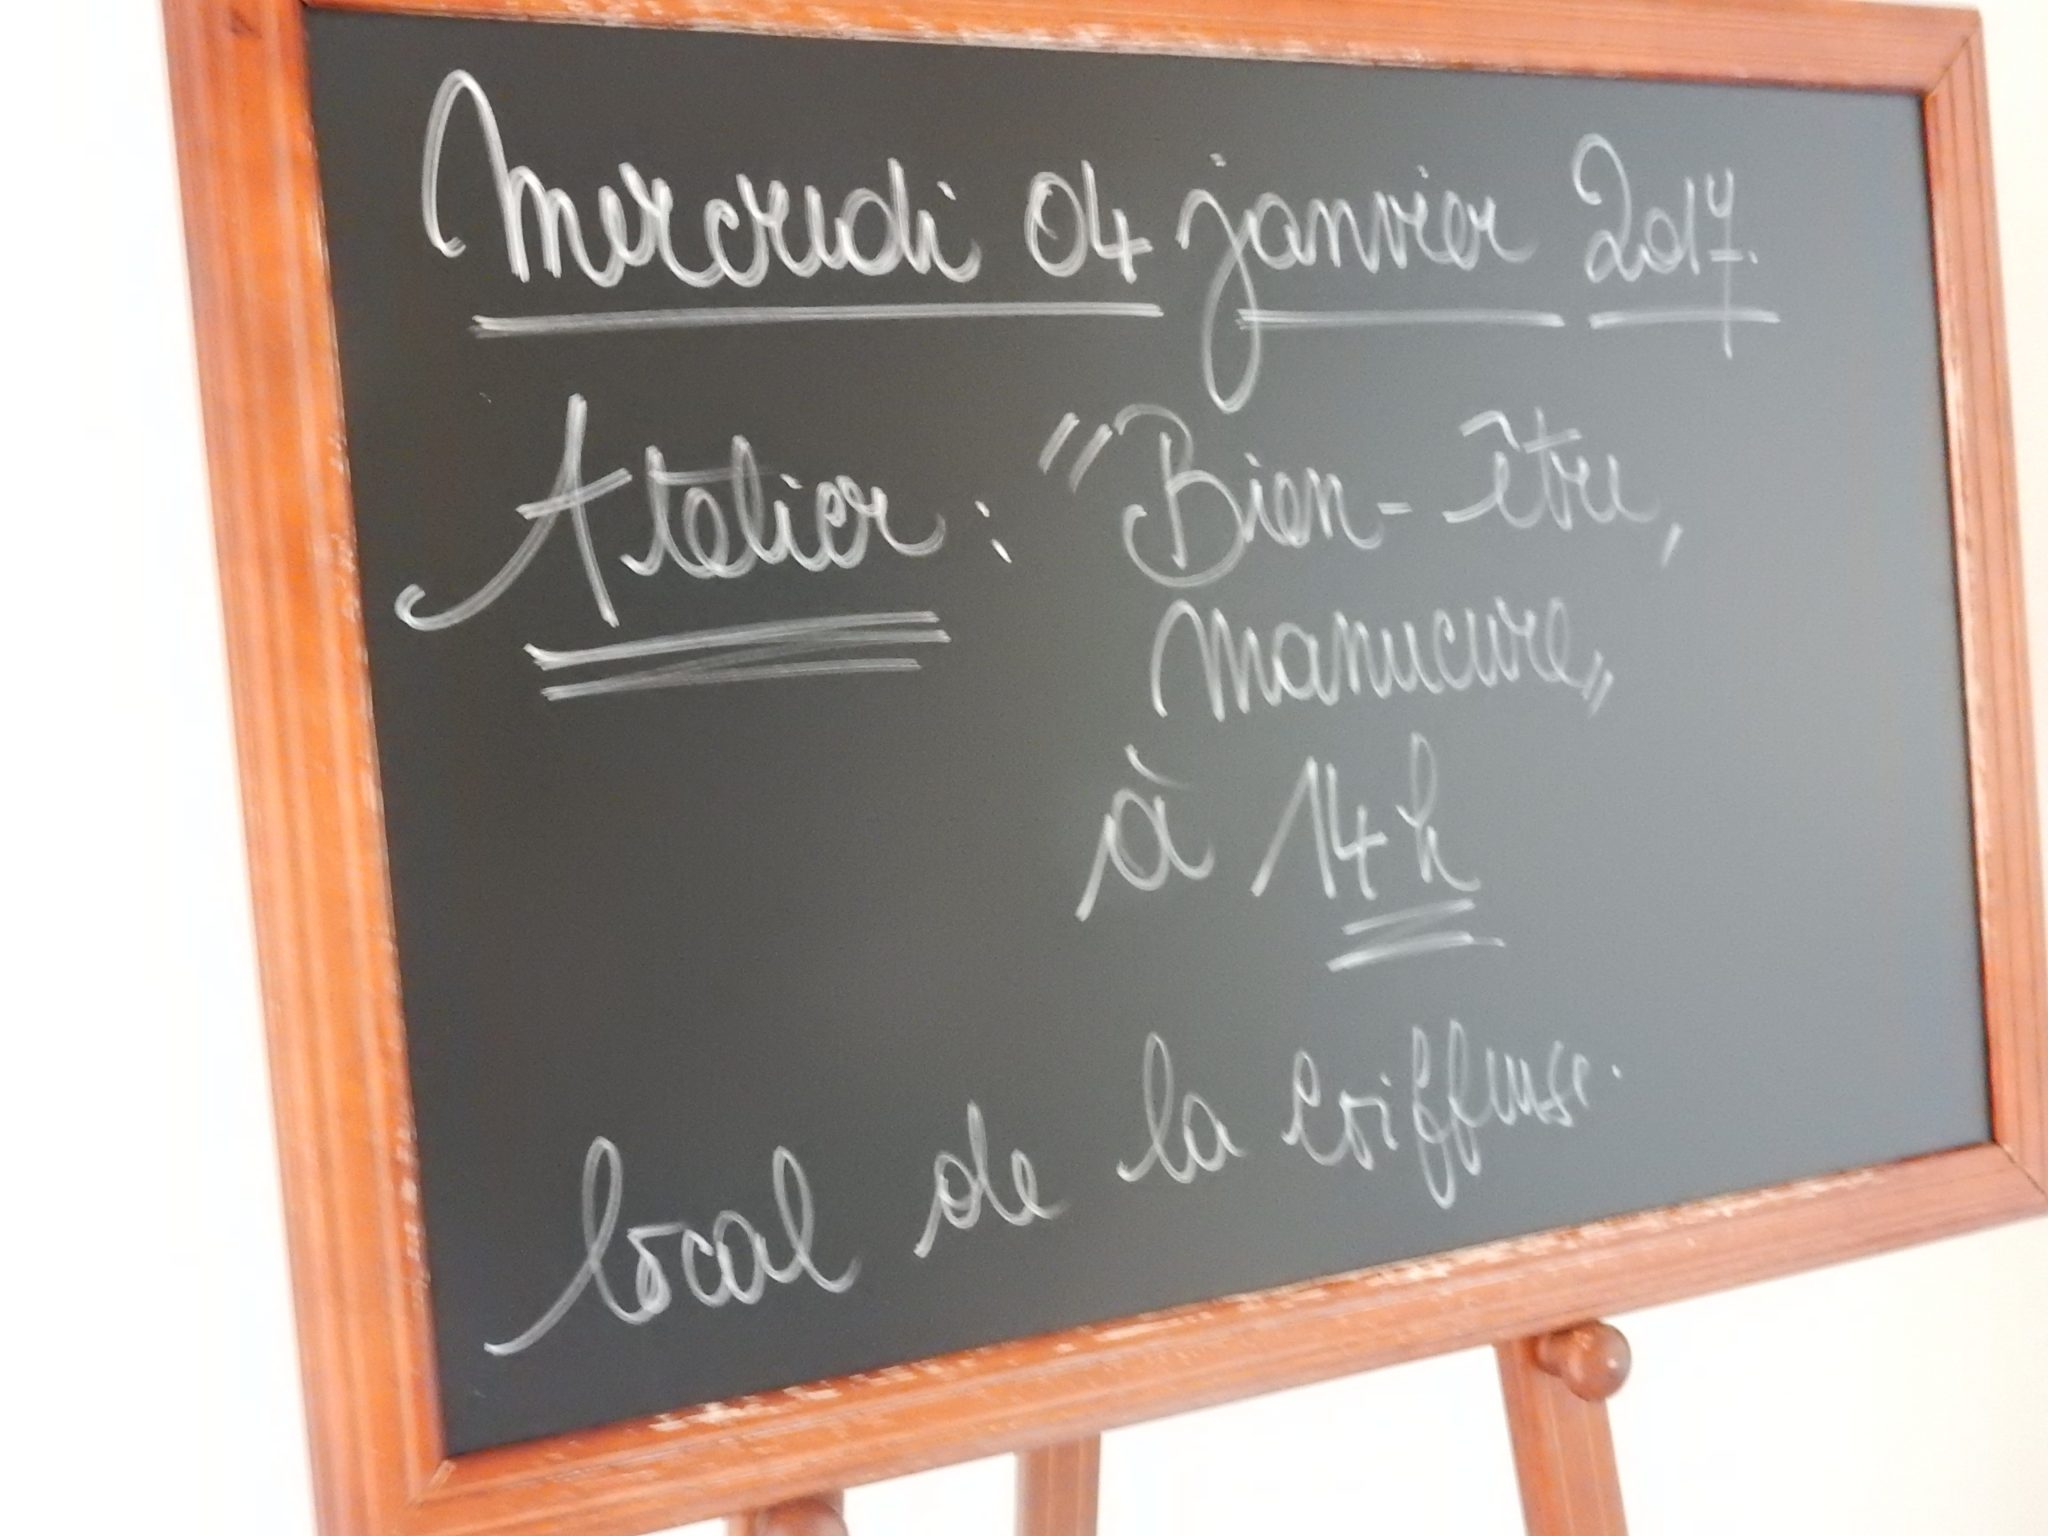 Mercredi 04 janvier 2017.
Atelier : "Bien-être,
Manucure"
à 14h
local de la coiffeuse.